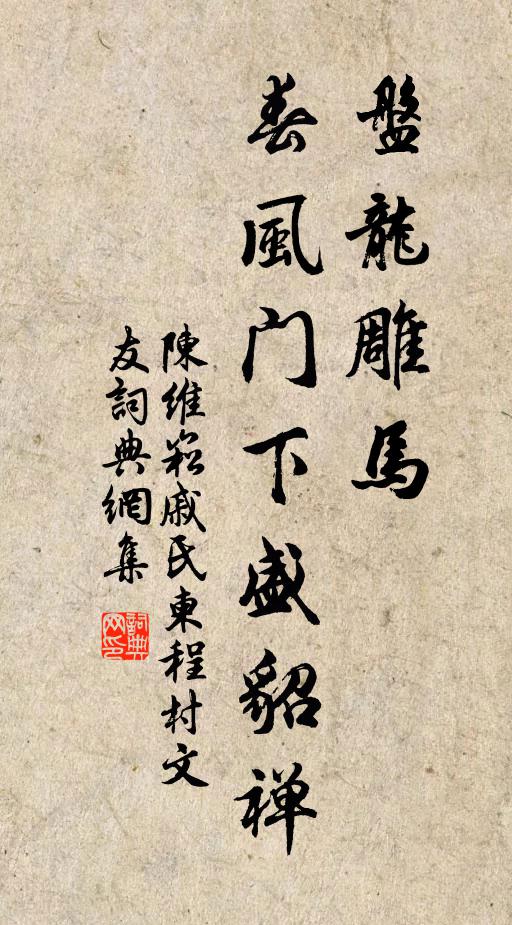 盤龍雕馬
春風门下盛貂禅
陳維崧戚氏東程村文
友詞典網集
詞典网印